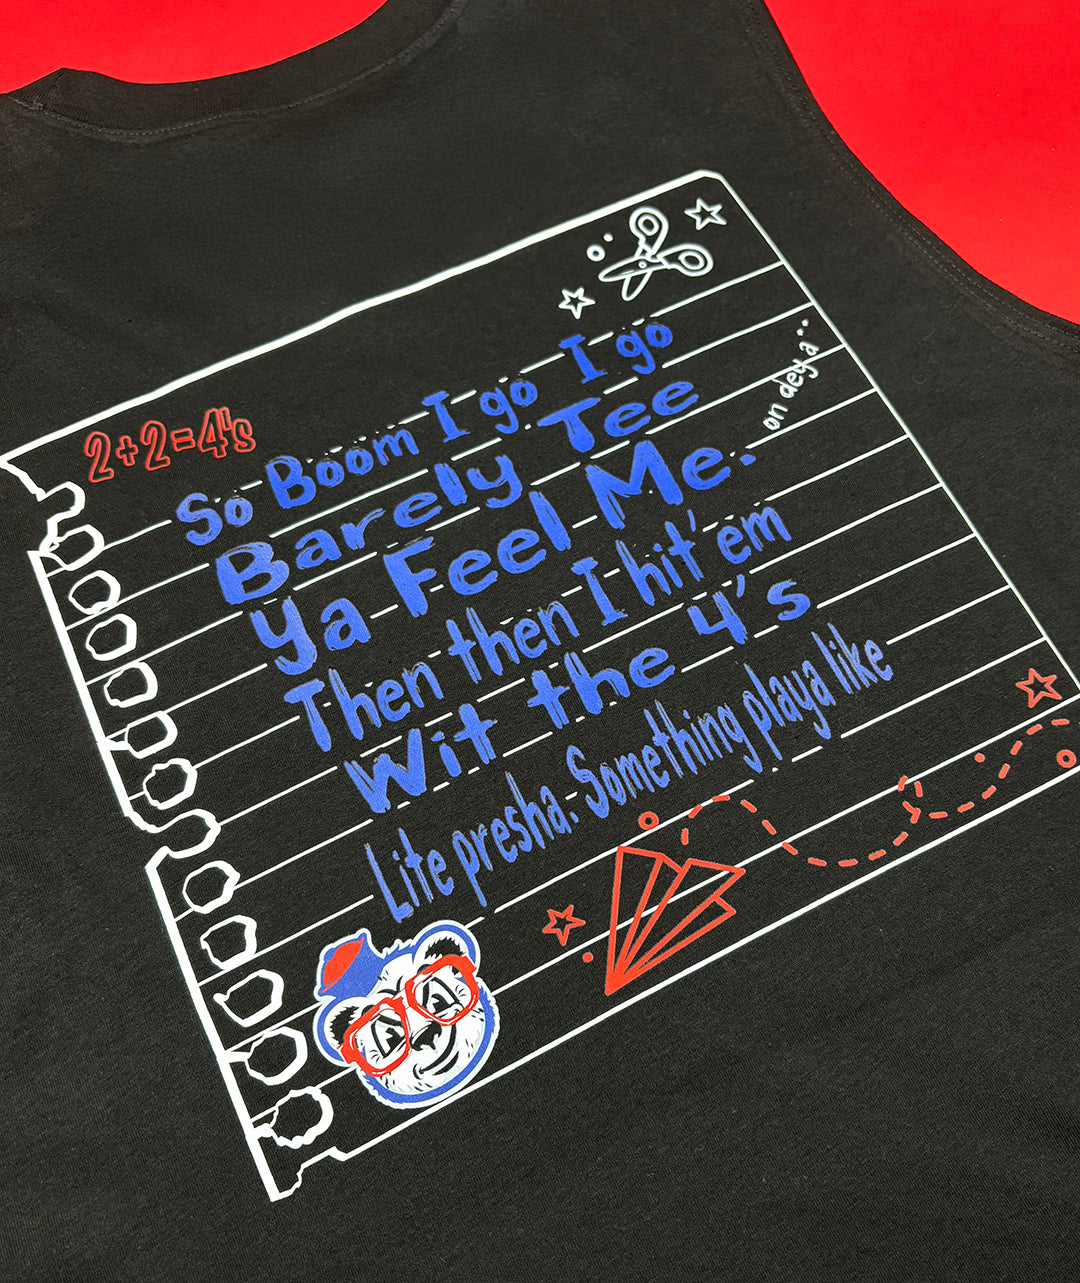 2+2=4's
So Boom I go I go
Barely Tee
Ya Feel Me.
on dey a..
Then then I hit' em
Wit the 4's
Lite presha. Something playa like